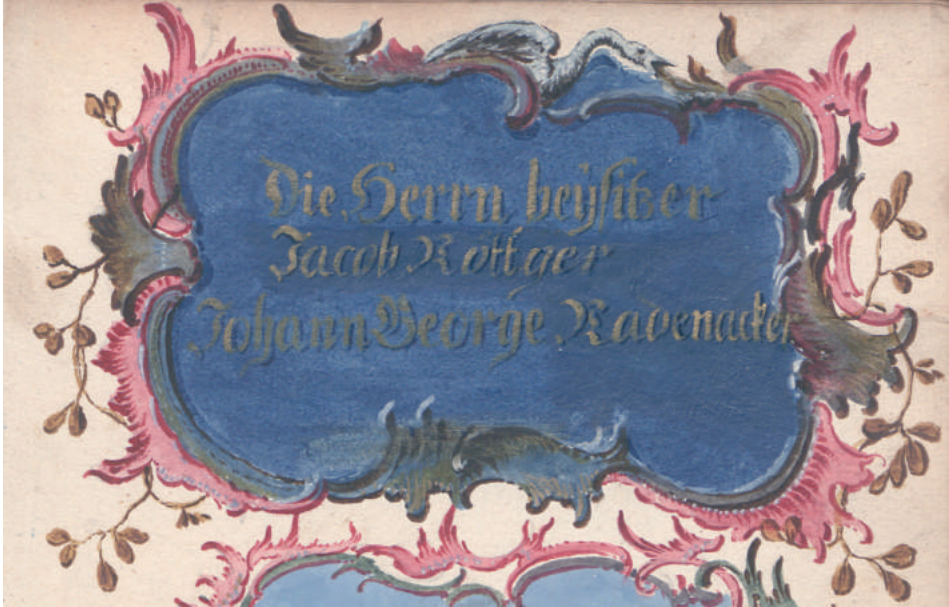 Die Herrn beÿsitzer
Jacob Röttger
Johann George Radenacker